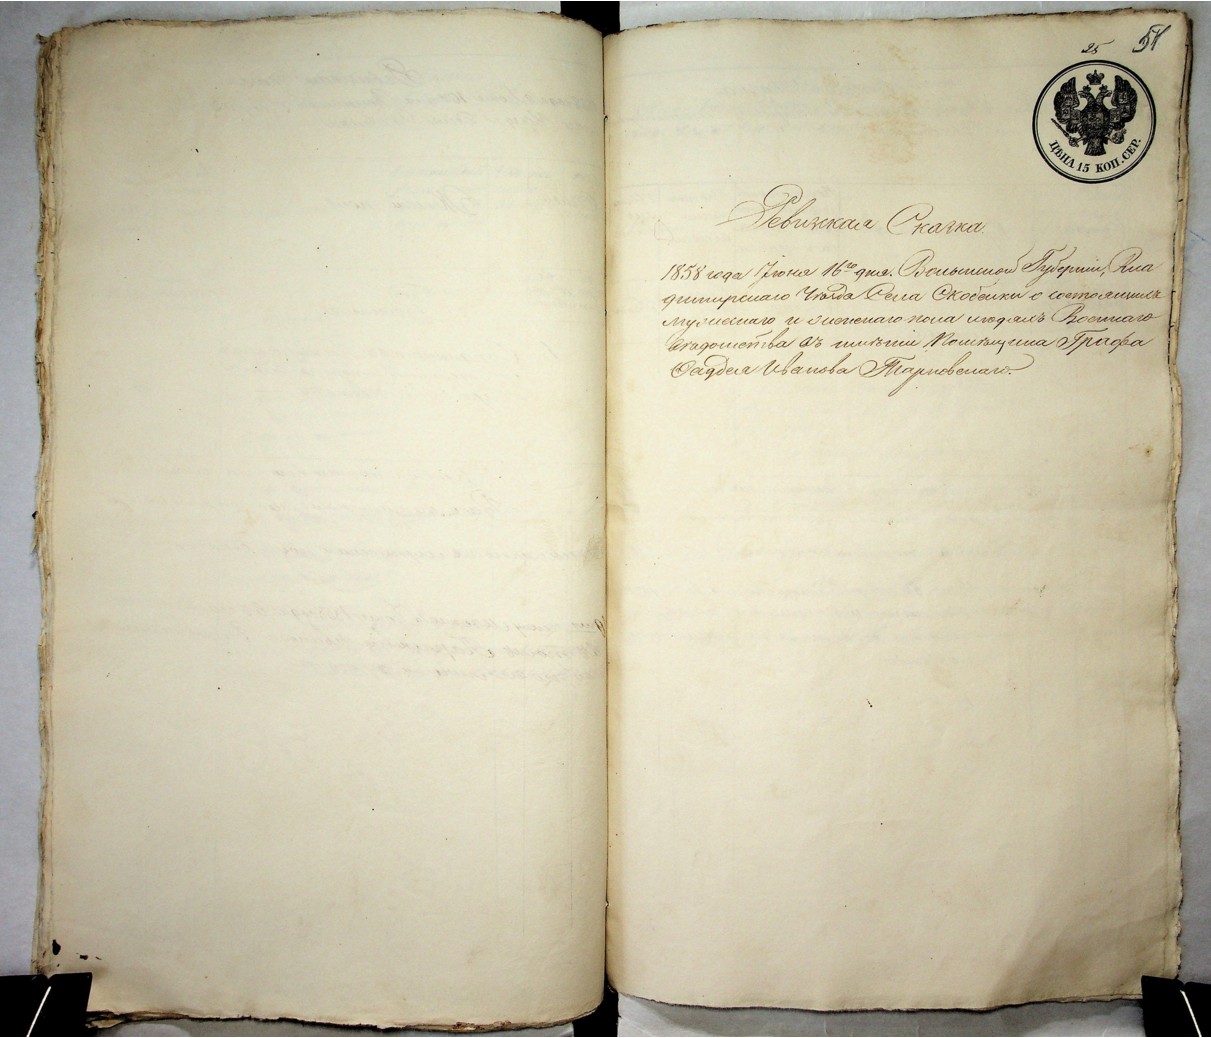 25
51
ЦѢНА 15 КОП. СЕР.
Ревизская Сказка.
1858 года Іюня 16го дня. Волынской Губерніи, Вла
димирскаго Уѣзда Села Скобелки о состоящихъ
мужескаго и женскаго пола людяхъ Военнаго
вѣдомства въ имѣніи Помѣщика Графа
Фаддея Иванова Тарновскаго.